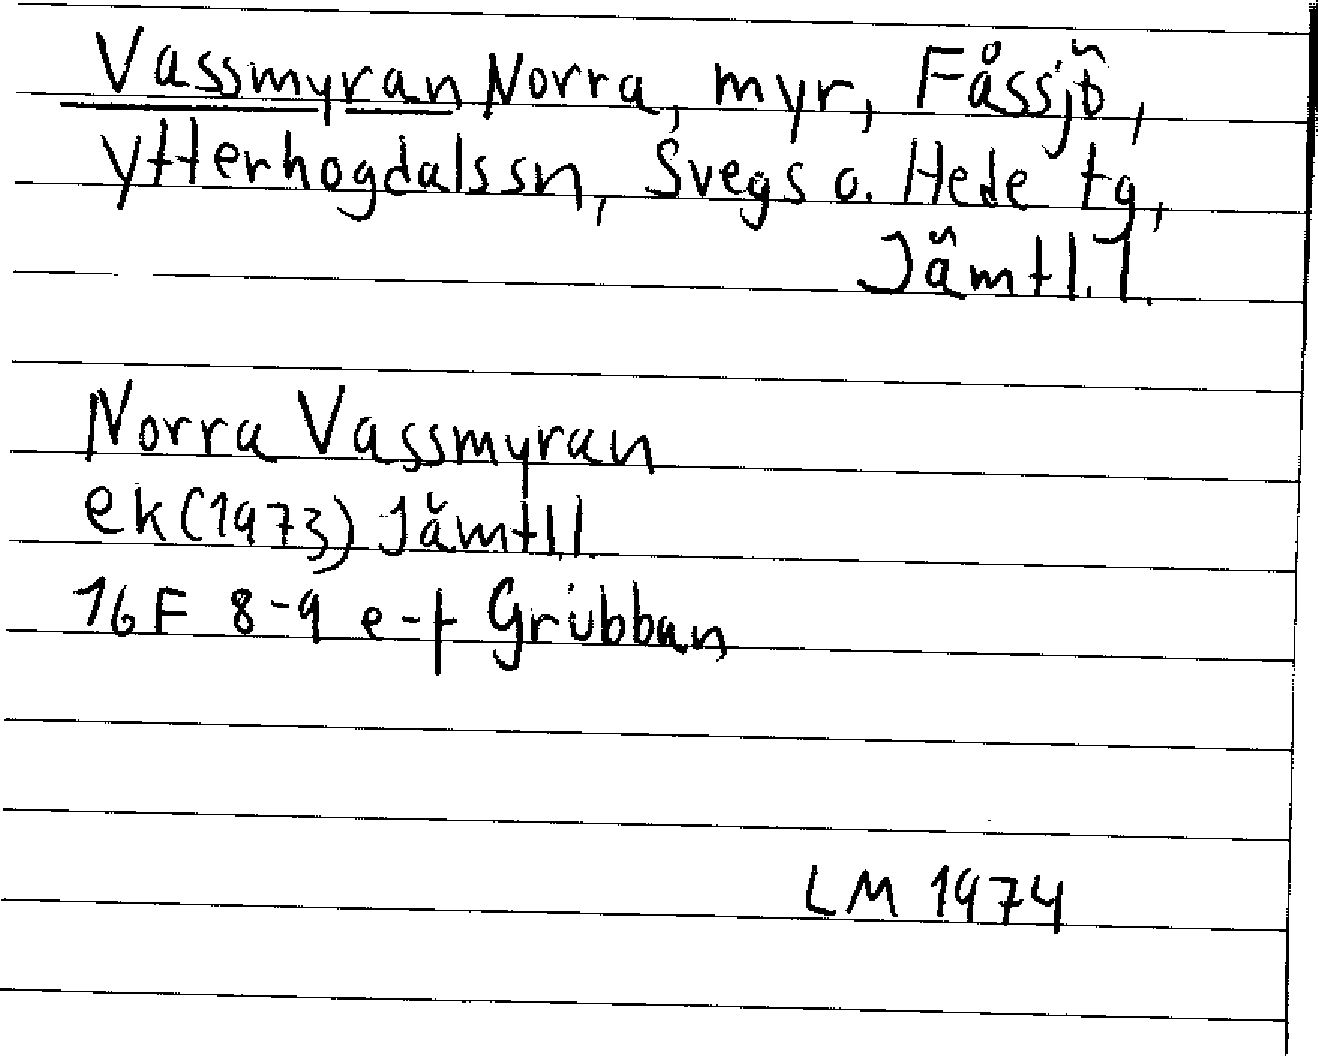 Vassmyran Norra, myr, Fåssjö,
Ytterhogdalssn, Svegs o. Hede tg,
Jämtl. l.
Norra Vassmyran
ek (1973) Jämtl.l.
16 F 8-9 e-f Grubban
LM 1974